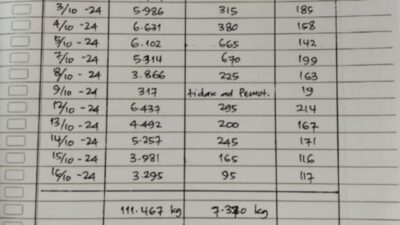 3/10 -24 5.986 315 185
4/10 -24 6.631 380 158
5/10 -24 6.102 665 142
7/10 -24 5.314 670 199
8/10 -24 3.866 225 163
9/10 -24 317 tidak ad Pemot. 19
12/10 -24 6.437 295 214
13/10 -24 4.492 200 167
14/10 -24 5.257 245 171
15/10 -24 3.981 165 116
16/10 -24 3.295 95 117
111.467 kg 7.320 kg